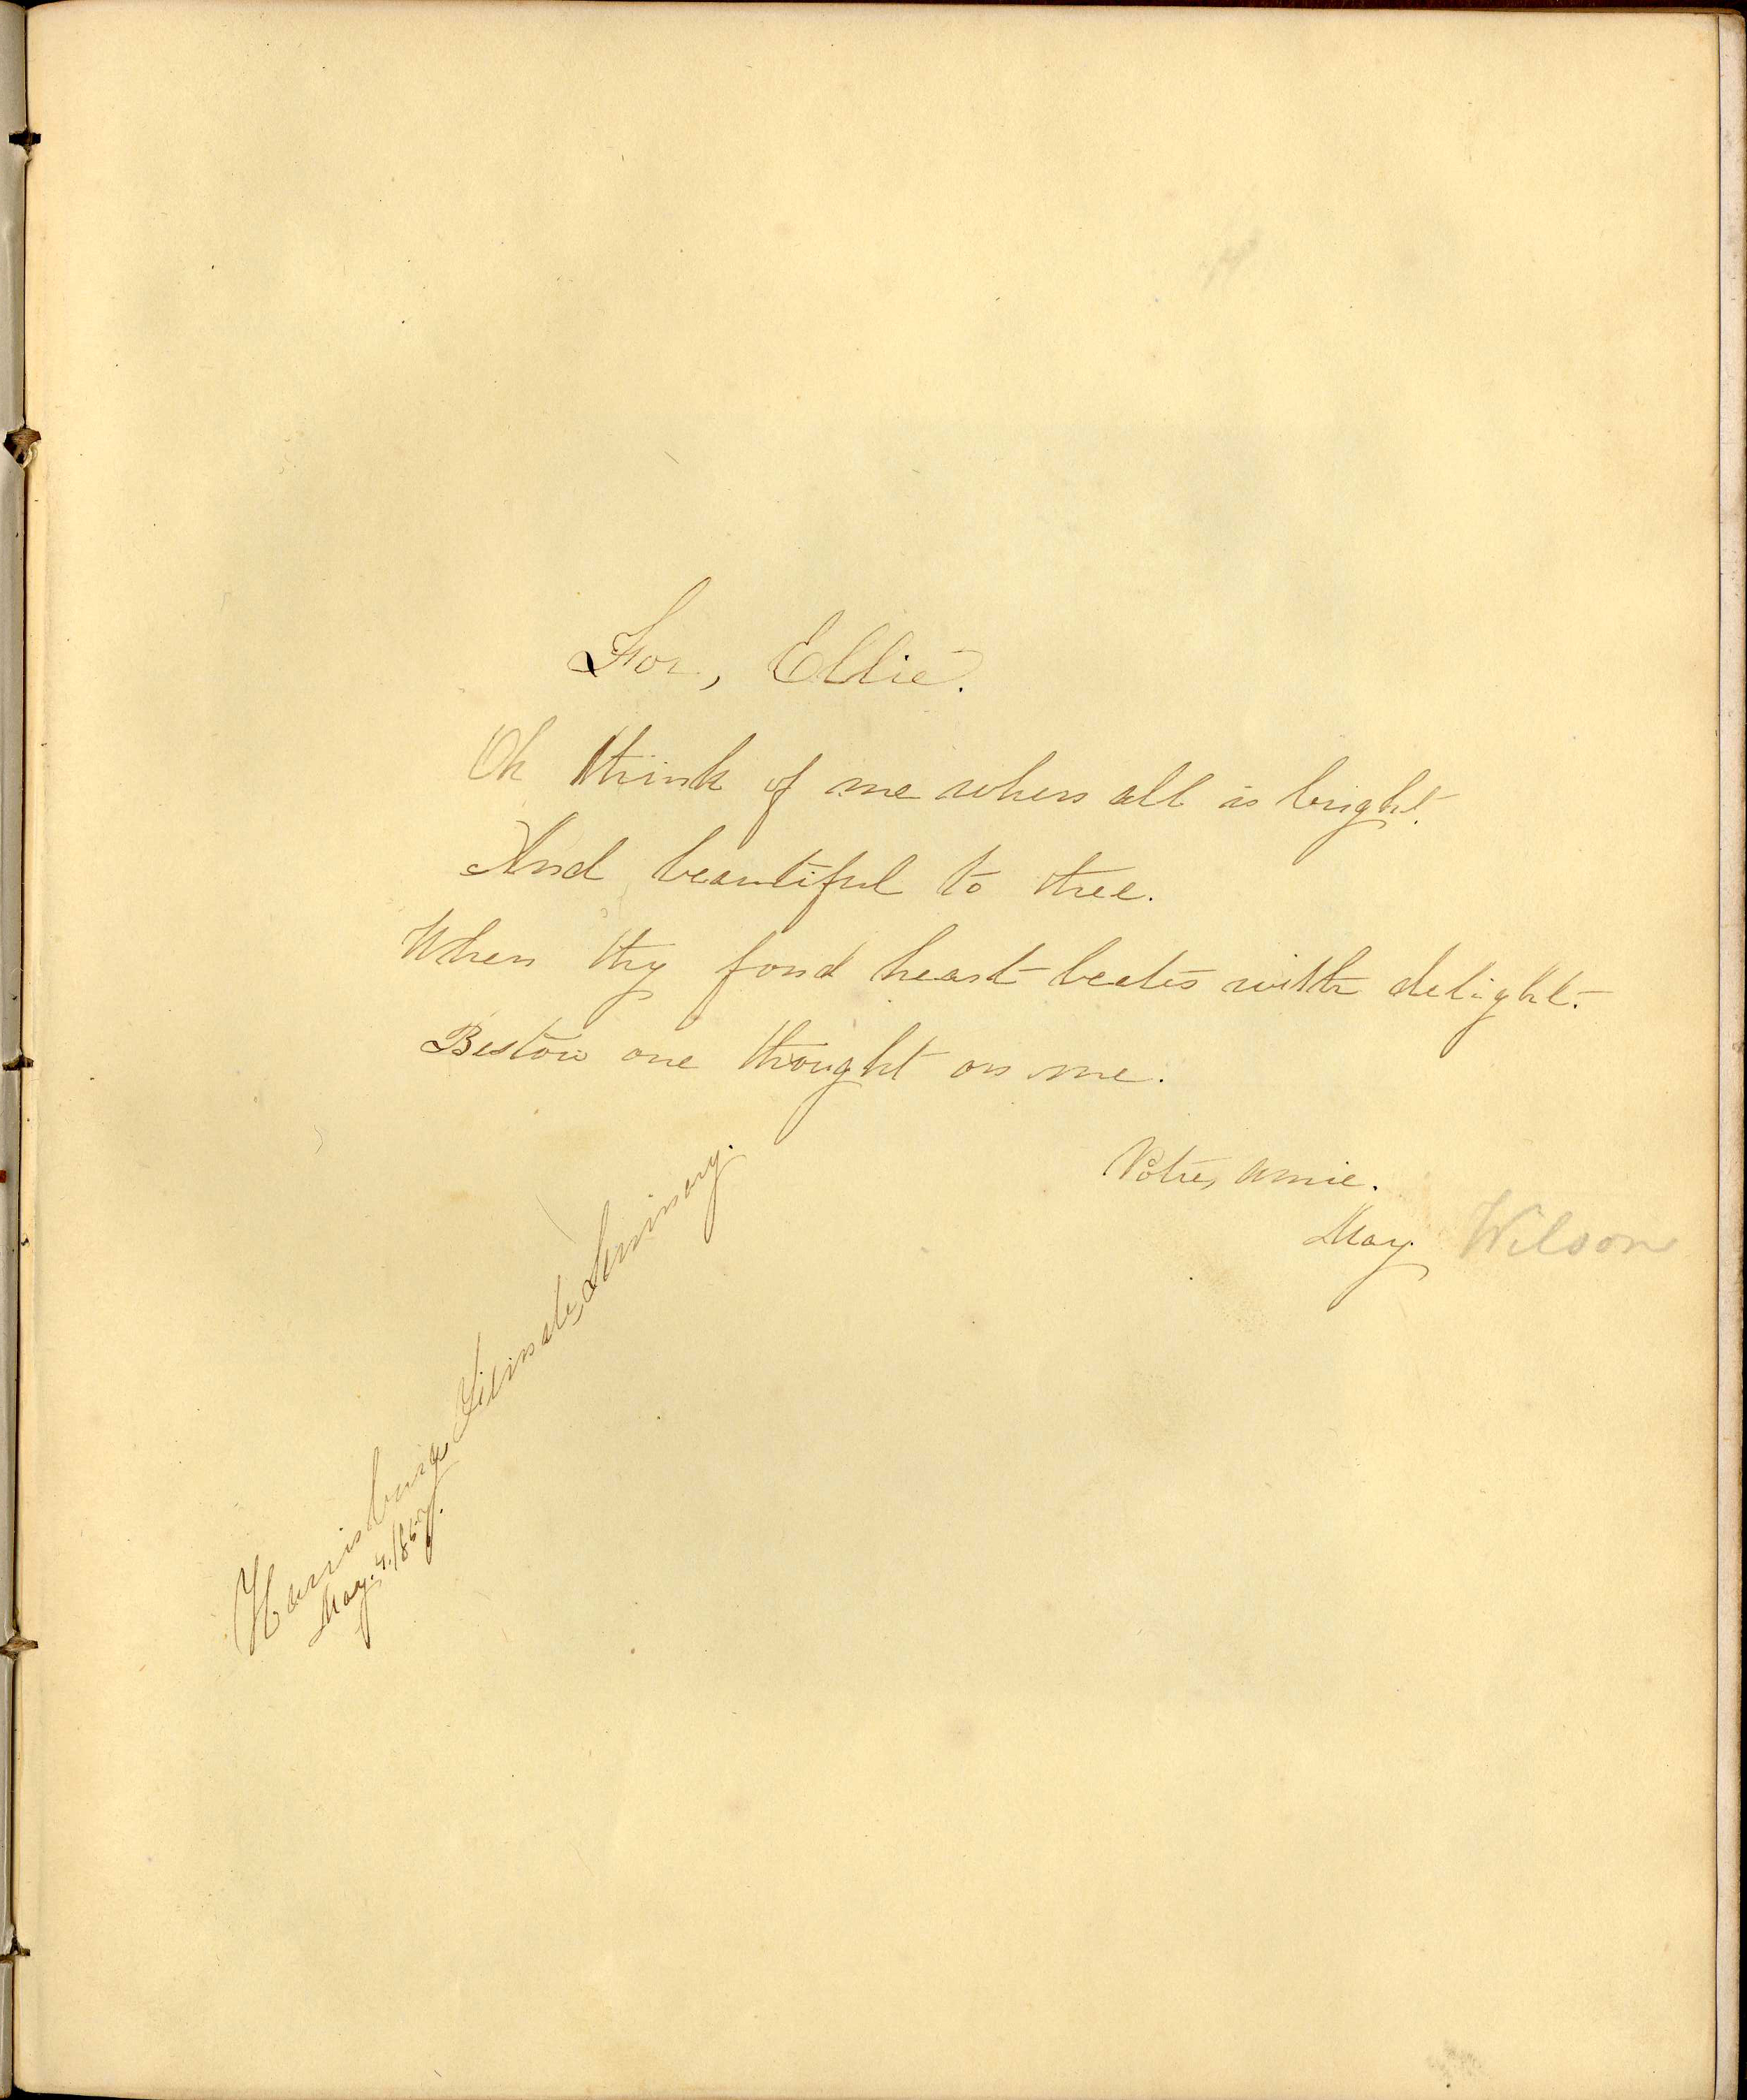 For, Ellie.
Oh think of me when all is bright.
And beautiful to thee.
When thy fond heart beats with delight.
Bestow one thought on me.
Votre, amie.
May. Wilson
Harrisburg Female, Seminary.
May. 4.